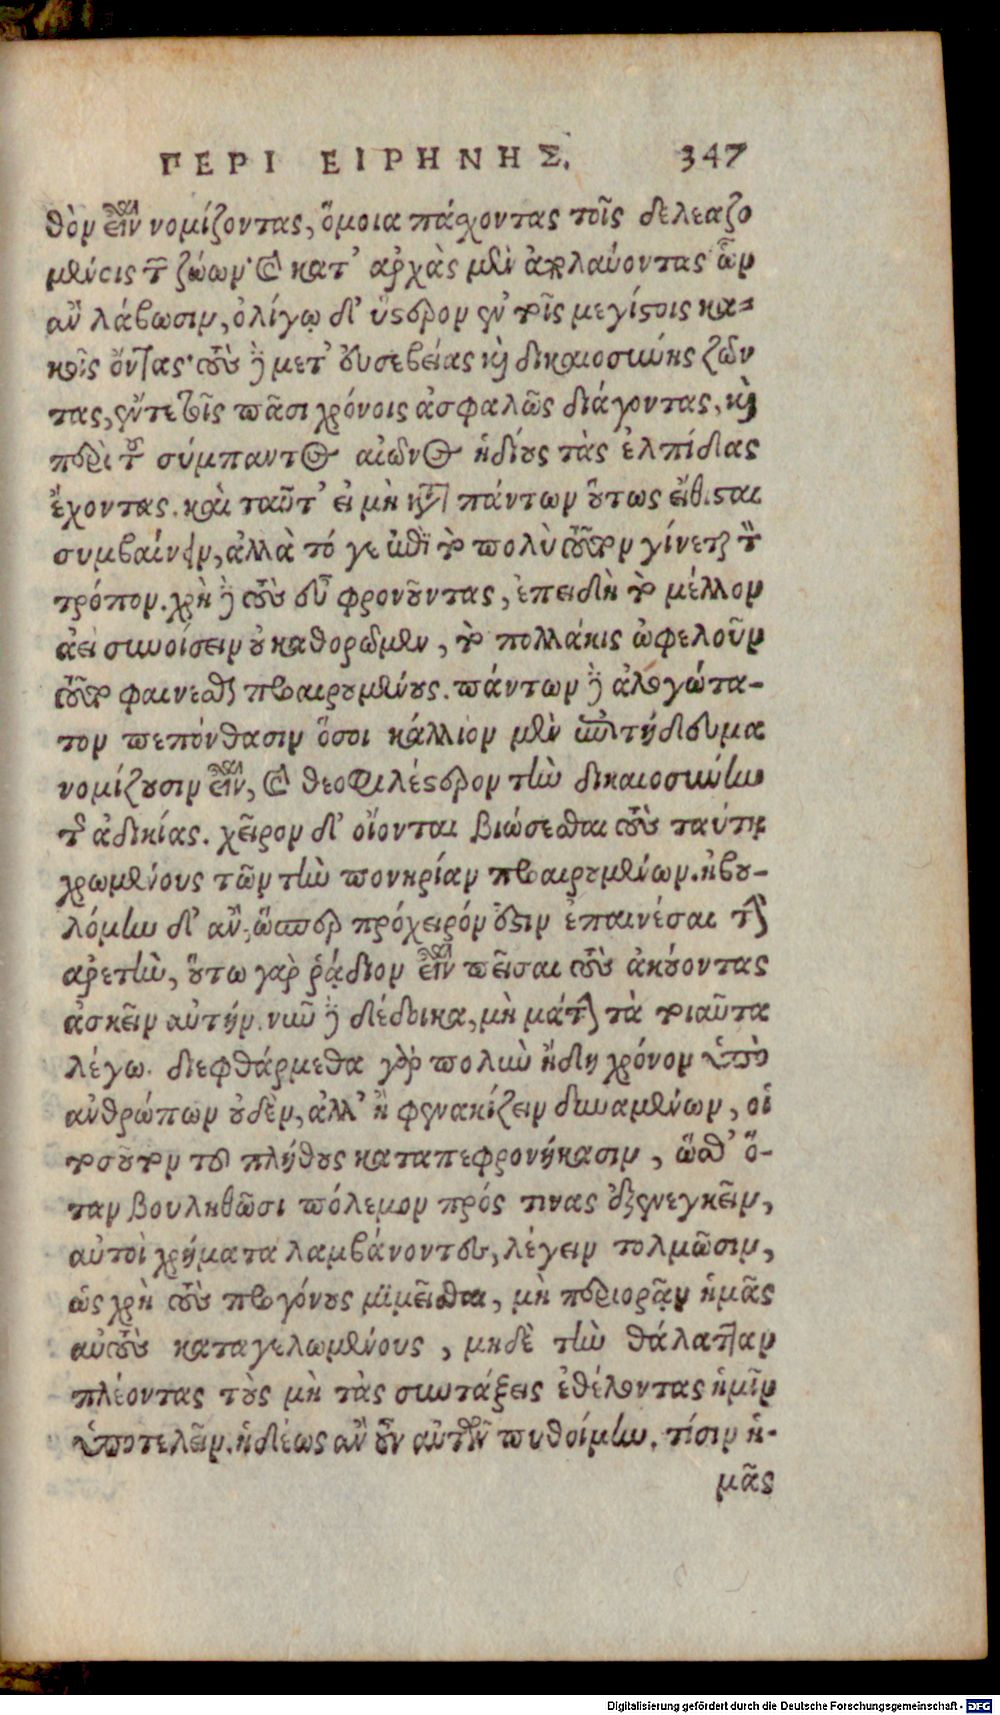 ΠΕΡΙ ΕΙΡΗΝΗΣ. 347
θὸν εἶναι νομίζοντας, ὅμοια πάχοντας τοῖς δελεαζο
μένοις τῶν ζώων· καὶ κατ' ἀρχὰς μὲν ἀπολαύοντας ὧν
ἂν λάβωσιν, ὀλίγῳ δ' ὕστερον ἐν τοῖς μεγίστοις κα-
κοῖς ὄντας· τοὺς δὲ μετ' εὐσεβείας καὶ δικαιοσύνης ζῶν
τας, ἔν τε τοῖς πᾶσι χρόνοις ἀσφαλῶς διάγοντας, καὶ
περὶ τοῦ σύμπαντος αἰῶνος ἡδίους τὰς ἐλπίδας
ἔχοντας. καὶ ταῦτ' εἰ μὴ κατὰ πάντων οὕτως εἴθισται
συμβαίνειν, ἀλλὰ τό γε ἐπὶ τὸ πολὺ τοῦτον γίνεται τὸν
τρόπον. χρὴ δὲ τοὺς εὖ φρονοῦντας, ἐπειδὴ τὸ μέλλον
ἀεὶ συνοίσειν οὐ καθορῶμεν, τὸ πολλάκις ὠφελοῦν
τοῦτο φαίνεσθαι προαιρουμένους. πάντων δὲ ἀλογώτα-
τον πεπόνθασιν ὅσοι κάλλιον μὲν ἐπιτήδευμα
νομίζουσιν εἶναι, καὶ θεοφιλέστερον τὴν δικαιοσύνην
τῆς ἀδικίας. χεῖρον δ' οἴονται βιώσεσθαι τοὺς ταύτῃ
χρωμένους τῶν τὴν πονηρίαν προαιρουμένων. ἠβου-
λόμην δ' ἄν, ὥσπερ πρόχειρόν ἐστιν ἐπαινέσαι τὴν
ἀρετὴν, οὕτω γὰρ ῥᾴδιον εἶναι πεῖσαι τοὺς ἀκούοντας
ἀσκεῖν αὐτήν. νῦν δὲ δέδοικα, μὴ μάτην τὰ τοιαῦτα
λέγω. διεφθάρμεθα γὰρ πολὺν ἤδη χρόνον ὑπὸ
ἀνθρώπων οὐδὲν, ἀλλ' ἢ φενακίζειν δυναμένων, οἱ
τοσοῦτον τοῦ πλήθους καταπεφρονήκασιν, ὥσθ' ὅ-
ταν βουληθῶσι πόλεμον πρός τινας ἐξενεγκεῖν,
αὐτοὶ χρήματα λαμβάνοντες, λέγειν τολμῶσιν,
ὡς χρὴ τοὺς προγόνους μιμεῖσθαι, μὴ περιορᾷν ἡμᾶς
αὐτοὺς καταγελωμένους, μηδὲ τὴν θάλατταν
πλέοντας τοὺς μὴ τὰς συντάξεις ἐθέλοντας ἡμῖν
ὑποτελεῖν. ἡδέως ἂν οὖν αὐτῶν πυθοίμην. τίσιν ἡ-
μᾶς
Digitalisierung gefördert durch die Deutsche Forschungsgemeinschaft - DFG